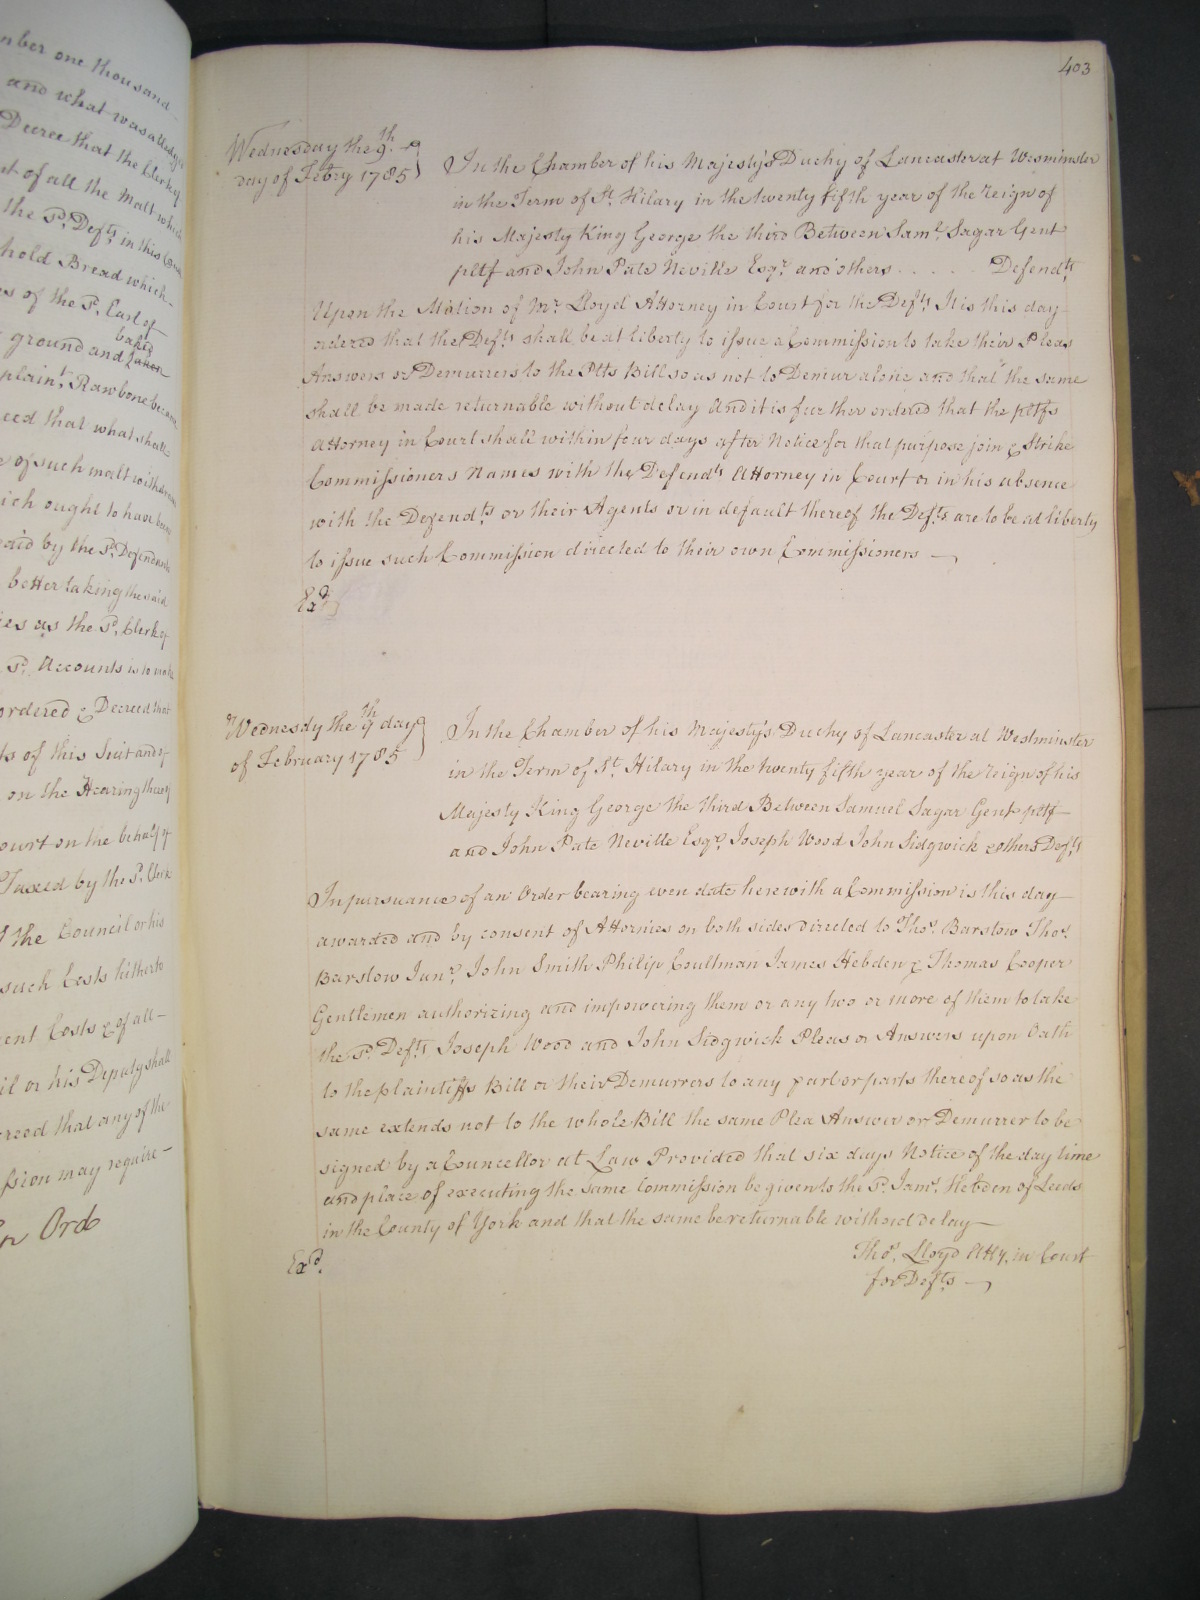 nber one thousand
and what was alledg'd
Decree that the Clerk of
nt of all the Malt which
the Sd. Defts. in this Cause
hold Bread which
es of the Sd. Earl of
baked
ground and taken
plaint. Rawbone became
eed that what shall
e of such malt with
ich ought to have been
aid by the Sd. Defendants
better taking the said
ies as the Sd. Clerk of
Sd. Accounts is to make
ordered & Decreed that
ts of this Suit and of
on the Hearing thereof
ourt on the behalf of
Taxed by the Sd. Clerk
the Council or his
such Costs hitherto
ent Costs & of all
il or his Deputy shall
reed that any of the
ssion may require
Ord
403
Wednesday the 9th
day of Febry 1785
In the Chamber of his Majesty's Duchy of Lancaster at Wesminster
in the Term of St. Hilary in the twenty fifth year of the reign of
his Majesty King George the third Between Saml. Sagar Gent
pltf and John Pate Neville Esqr. and others . . . . . Defendts.
Upon the Motion of Mr. Lloyd Attorney in Court for the Defts. It is this day
ordered that the Defts. shall be at liberty to issue a Commission to take their Pleas
Answers or Demurrers to the Pltfs Bill so as not to Demur alone and that the same
shall be made returnable without delay And it is further ordered that the pltfs
Attorney in Court shall within four days after Notice for that purpose join & Strike
Commissioners Names with the Defendts. Attorney in Court or in his absence
with the Defendts. or their Agents or in default thereof the Defts. are to be at liberty
to issue such Commission directed to their own Commissioners
Exd.
Wednesdy the 9th day
of February 1785
In the Chamber of his Majesty's Duchy of Lancaster at Westminster
in the Term of St. Hilary in the twenty fifth year of the reign of his
Majesty King George the third Between Samuel Sagar Gent pltf
and John Pate Neville Esqr. Joseph Wood John Sidgwick & others Defts.
In pursuance of an Order bearing even date herewith a Commission is this day
awarded and by consent of Attornies on both sides directed to Thos. Barstow Thos.
Barstow Junr. John Smith Philip Coultman James Hebden & Thomas Cooper
Gentlemen authorizing and impowering them or any two or more of them to take
the Sd. Defts. Joseph Wood and John Sidgwick Pleas or Answers upon Oath
to the plaintiffs Bill or their Demurrers to any part or parts thereof so as the
same extends not to the whole Bill the same Plea Answer or Demurrer to be
signed by a Councellor at Law Provided that six days Notice of the day time
and place of executing the same Commission be given to the Sd. Jams. Hebden of Leeds
in the County of York and that the same be returnable without delay
Exd.
Thos. Lloyd Atty. in Court
for Defts.